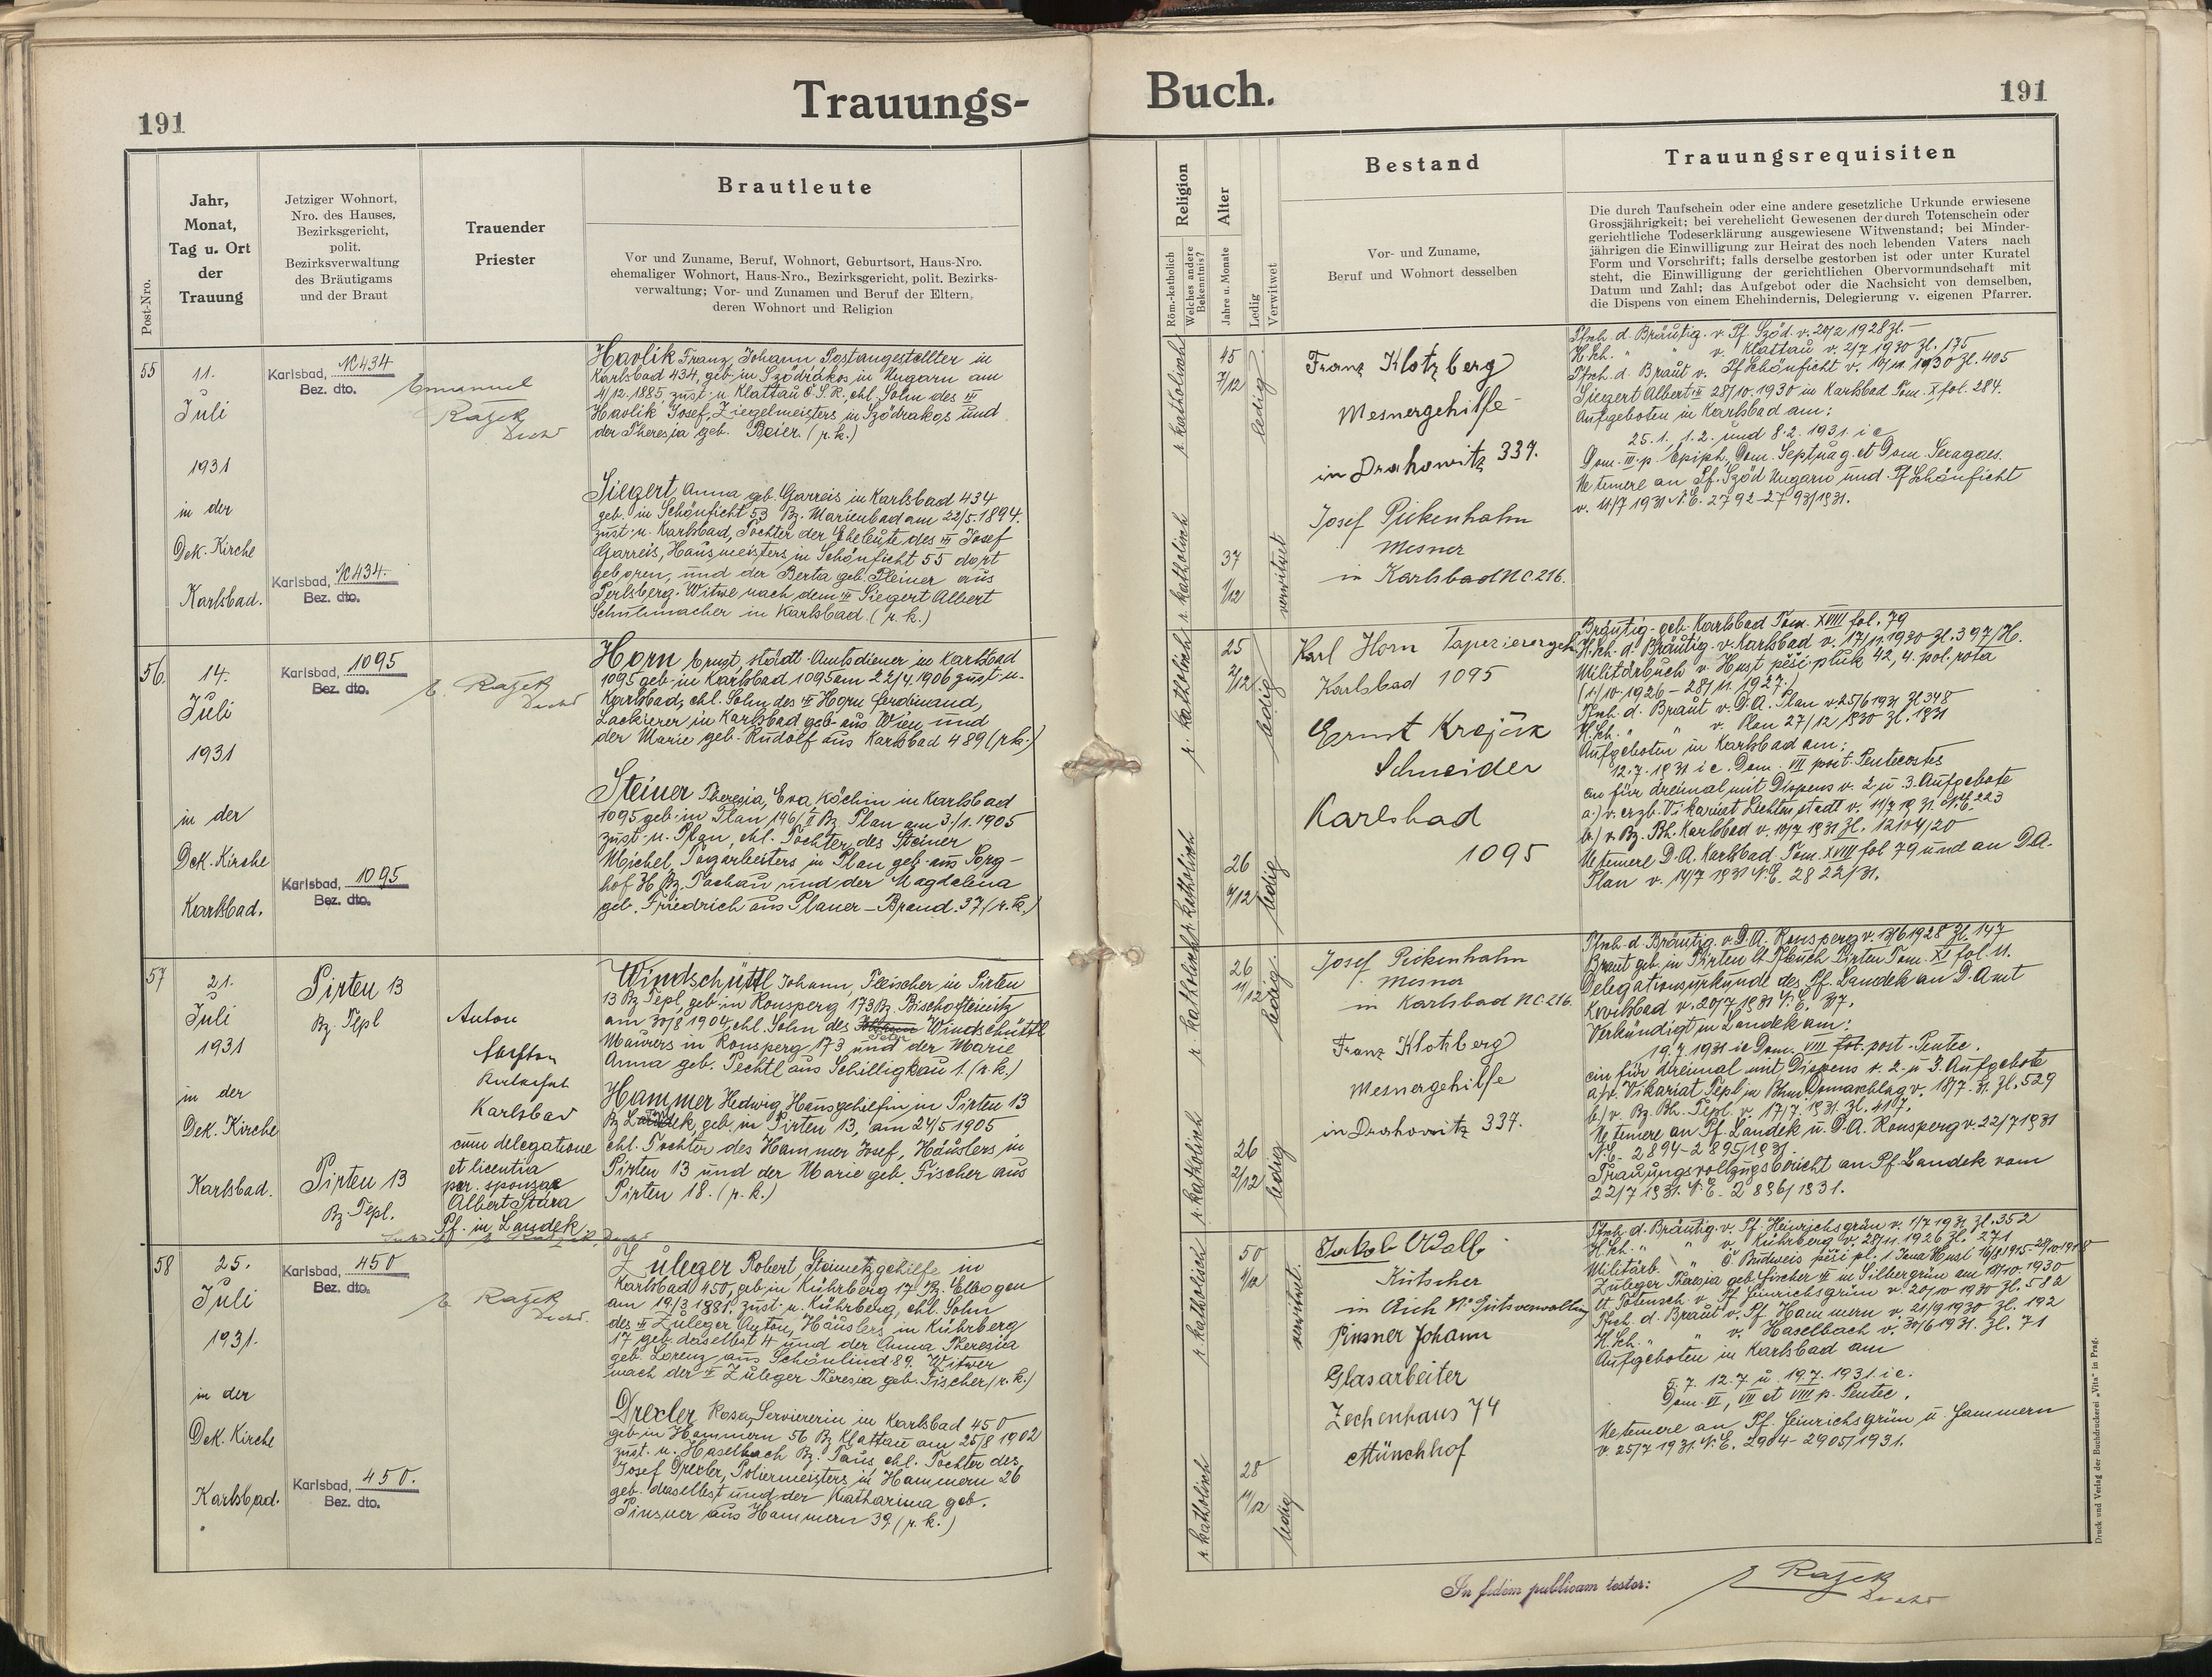 191
Trauungs-
Post-Nro.
Jahr,
Monat,
Tag u. Ort
der
Trauung
Jetziger Wohnort,
Nro. des Hauses,
Bezirksgericht,
polit.
Bezirksverwaltung
des Bräutigams
und der Braut
Trauender
Priester
Brautleute
Vor und Zuname, Beruf, Wohnort, Geburtsort, Haus-Nro.
ehemaliger Wohnort, Haus-Nro., Bezirksgericht, polit. Bezirks-
verwaltung; Vor- und Zunamen und Beruf der Eltern,
deren Wohnort und Religion
55
11.
Juli
1931
in der
Dek. Kirche
Karlsbad.
Karlsbad, 434
Bez. dto.
Karlsbad, 434.
Bez. dto.
Emmanuel
Rajek
Havlik Franz, Johann Postangestellter in
Karlsbad 434, geb. in Sződrákos in Ungarn am
4/12.1885, zust. n. Klattau Č.S.R., ehl. Sohn des
Havlik Josef, Ziegelmeisters in Sződrákos und
der Theresia geb. Beier. (r. k.)
Siegert, Anna geb. Garreis in Karlsbad 434
geb. in Schönficht 53 Bz. Marienbad am 22/5.1894.
zust. n. Karlsbad, Tochter der Eheleute des Josef
Garreis, Hausmeisters, in Schönficht 55 dort
geboren, und der Berta geb. Pleiner aus
Perlsberg. Witwe nach dem Siegert Albert
Schuhmacher in Karlsbad. (r. k.)
56.
14.
Juli
1931
in der
Dek. Kirche
Karlsbad.
Karlsbad, 1095
Bez. dto.
Karlsbad, 1095
Bez. dto.
E. Rajek
Horn Ernst, städt. Amtsdiener in Karlsbad
1095 geb. in Karlsbad 1095 am 22/4.1906 zust. n.
Karlsbad, ehl. Sohn des Horn Ferdinand,
Lackierer in Karlsbad geb. aus Wien und
der Marie geb. Rudolf aus Karlsbad 489 (r.k.)
Steiner Theresia, Eva, Köchin in Karlsbad
1095 geb. in Plan 196/II Bz. Plan am 3./1.1905
zust. n. Plan, ehl. Tochter des Steiner
Michel, Tagarbeiters in Plan geb. aus Sorg-
hof H. Bz. Tachau und der Magdalena
geb. Friedrich aus Planer-Brand. 37 (r. k.)
57
21.
Juli
1931
in der
Dek. Kirche
Karlsbad.
Pirten 13
Bz. Tepl
Pirten 13
Bz. Tepl.
Anton
Karlsbad
cum delegatione
et licentia
par. sponsae
Albert Stára
Pf. in Landek
Windschüttl Johann, Fleischer in Pirten
13 Bz. Tepl, geb. in Ronsperg 173 Bz. Bischofteinitz
am 30/8 1904, ehl. Sohn des Windschüttl
Maurers in Ronsperg 173 und der Marie
Anna geb. Pechtl aus Schilligkau 1. (r. k.)
Hammer Hedwig Hausgehilfin in Pirten 13
Bz. geb. in Pirten 13, am 24/5 1905
ehl. Tochter des Hammer Josef, Häuslers in
Pirten 13 und der Marie geb. Fischer aus
Pirten 18. (r. k.)
58
25.
Juli
1931.
in der
Dek. Kirche
Karlsbad.
Karlsbad, 450
Bez. dto.
Karlsbad, 450.
Bez. dto.
E. Rajek
Zuleger Robert, Steinmetzgehilfe in
Karlsbad 450, geb. in Kührberg 17 Bz. Elbogen
am 19/3 1881, zust. n. Kührberg, ehl. Sohn
des Zuleger Anton, Häuslers in Kührberg
17 geb. daselbst 4 und der Anna Theresia
geb. Lorenz aus Schönlind 89. Witwer
nach der Zuleger Theresia geb. Fischer (r. k.)
Drexler Rosa, Serviererin in Karlsbad 450
geb. in Hammern 56 Bz. Klattau am 25/8 1902
zust. n. Haselbach Bz. Taus ehl. Tochter des
Josef Drexler, Poliermeisters in Hammern 26
geb. daselbst und der Katharina geb.
Pinsner aus Hammern 39 (r. k.)
Buch.
191
Religion
Röm.-katholisch
Welches andere
Bekenntnis?
Alter
Jahre u. Monate
Ledig
Verwitwet
Bestand
Vor- und Zuname,
Beruf und Wohnort desselben
Trauungsrequisiten
Die durch Taufschein oder eine andere gesetzliche Urkunde erwiesene
Grossjährigkeit; bei verehelicht Gewesenen der durch Totenschein oder
gerichtliche Todeserklärung ausgewiesene Witwenstand; bei Minder-
jährigen die Einwilligung zur Heirat des noch lebenden Vaters nach
Form und Vorschrift; falls derselbe gestorben ist oder unter Kuratel
steht, die Einwilligung der gerichtlichen Obervormundschaft mit
Datum und Zahl; das Aufgebot oder die Nachsicht von demselben,
die Dispens von einem Ehehindernis, Delegierung v. eigenen Pfarrer.
r. katholisch
45
7/12
ledig
r. katholisch
37
1/12
verwitwet
Franz Klotzberg
Mesnergehilfe
in Drahowitz 337.
Josef Pickenhahn
Mesner
in Karlsbad NC. 216.
Tfsch. d. Bräutig. v. Pf. Sződ. v. 20/2 1928 Zl. –
H.sch. " " v. Klattau v. 2/7 1930 Zl. 175
Tfsch. d. Braut v. Pf. Schönficht v. 1930 Zl. 405
Siegert Albert 28/10.1930 in Karlsbad Tom. X fol. 284.
Aufgeboten in Karlsbad am:
25.1., 1.2. und 8.2.1931. i. e.
Dom. III. p. Epiph., Dom. Septuag. et Dom. Sexages.
Ne temere an Pf. Sződ Ungarn und Pf Schönficht
v. 11/7 1931 N.E. 2792-2793/1931.
r. katholisch
25
2/12
ledig
r. katholisch
26
6/12
ledig
Karl Horn Tapezierergeh.
Karlsbad 1095
Ernst Krejčik
Schneider
Karlsbad
1095
Bräutig. geb. Karlsbad Tom. XVIII fol. 79
H.sch. d. Bräutig. v. Karlsbad v. 17/11.1930 Zl. 397/H.
Militärbuch v. Hust pěší pluk 42, 4. pol. rota
(1/10.1926 – 28/11.1927.)
Tfsch. d. Braut v. D.A. Plan v. 25/6 1931 Zl 348
H.sch. " " v. Plan 27/12 1930 Zl. 1831
Aufgeboten in Karlsbad am:
12.7.1931 i. e. Dom. VII post. Pentecostes
ein für dreimal mit Dispens v. 2. u. 3. Aufgebote
a.) v. erzb. Vikariat Lichtenstadt v. 11/7 1931 N.E. 223
b.) v. Bz. Bh. Karlsbad v. 10/7 1931 Zl. 12104/20
Ne temere D.A. Karlsbad Tom. XVIII fol 79 und an D.A.
Plan v. 14/7 1931 N.E. 2822/31.
r. katholisch
26
11/12
ledig.
r. katholisch
26
2/12
ledig
Josef Pickenhahn
Mesner
in Karlsbad NC. 216.
Franz Klotzberg
Mesnergehilfe
in Drahowitz 337.
Tfsch. d. Bräutig. v. D.A. Ronsperg v. 13/6 1928 Zl. 147
Braut geb. in Pirten lt. Tfbuch Pirten Tom. XI fol. 11.
Delegationsurkunde des Pf. Landek an D. Amt
Karlsbad v. 20/7 1931 N.E. 317.
Verkündigt in Landek am:
19.7.1931 i. e. Dom. VIII post. Pentec.
ein für dreimal mit Dispens v. 2. u. 3. Aufgebote
a) v. Vikariat Tepl in Domaschlag v. 18/7. 31. Zl. 529
b.) v. Bz. Bh. Tepl. v. 17/7.1931. Zl. 4107.
Ne temere an Pf. Landek u. D.A. Ronsperg v. 22/7 1931
N.E. 2894-2895/1931.
Trauungsvollzugsbericht an Pf. Landek vom
22/7 1931. N.E. 2896/1931.
r. katholisch
50
4/12
verwitwet.
r. katholisch
28
11/12
ledig
Jakob
Kutscher
in Aich Nr. Gutsverwaltung
Pinsner Johann
Glasarbeiter
Zechenhaus 74
Münchhof
Tfsch. d. Bräutig. v. Pf. Heinrichsgrün v. 1/7 1931 Zl. 352
H.sch. " " v. Kührberg v. 28/11.1926 Zl. 271
Militärb. " Č. Budweis pěší pl. 1 Jana Husi
Zuleger Theresia geb. Fischer in Silbergrün am 18/10.1930
lt. Totensch. v. Pf. Heinrichsgrün v. 20/10 1930 Zl. 512
Tfsch. d. Braut v. Pf. Hammern v. 21/9 1930 Zl. 192
H.sch. " " v. Haselbach v. 30/6 1931. Zl. 71
Aufgeboten in Karlsbad am
5.7. 12.7 u. 19.7.1931. i. e.
Dom. VI, VII et VIII p. Pentec.
Ne temere an Pf. Heinrichsgrün u. Hammern
v. 25/7 1931. N.E. 2904-2905/1931.
In fidem publicam testor:
E Rajek
Druck und Verlag der Buchdruckerei „Vita“ in Prag.